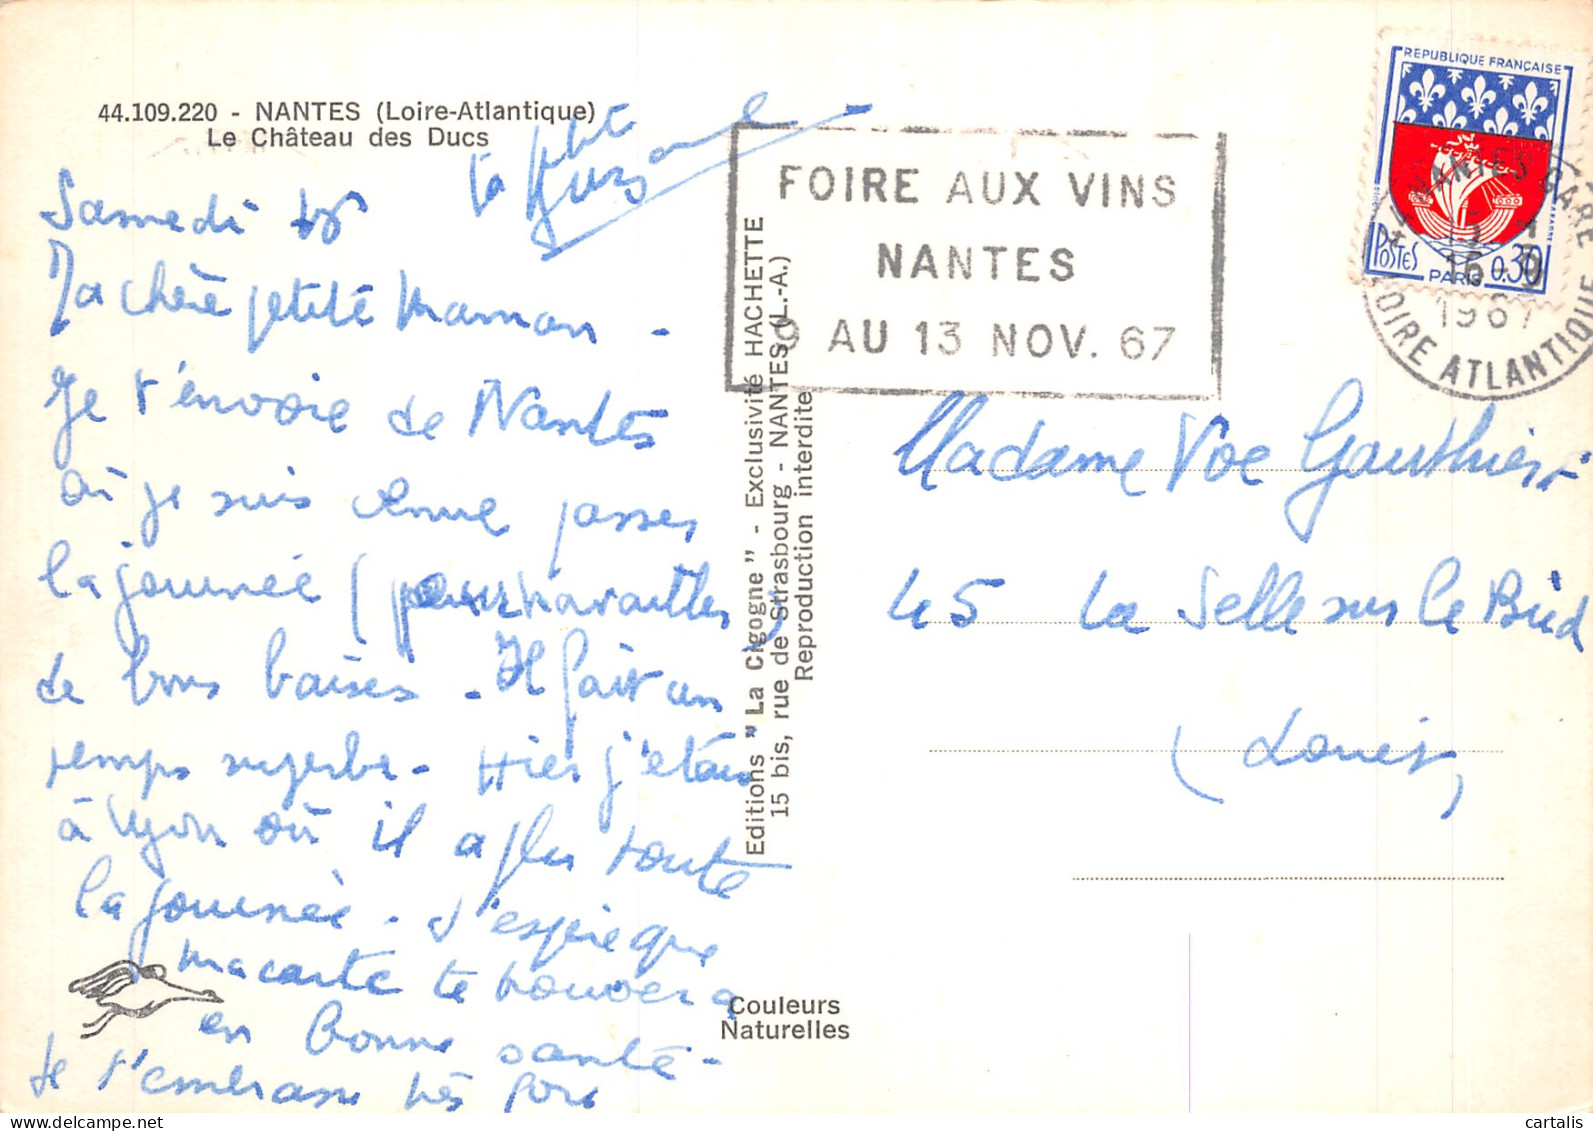 44.109.220 - NANTES (Loire-Atlantique)
Le Château des Ducs
Samedi
Ma chère petite Maman -
Je t'envoie de Nantes
où je suis venue passer
la journée (pour travailler)
de bons baisers - Il fait un
temps superbe - Hier j'étais
à Lyon où il a plu toute
la journée - J'espère que
ma carte te trouvera
en bonne santé -
Je t'embrasse très fort
ta petite
Suzanne
Editions "La Cigogne" - Exclusivité HACHETTE
15 bis, rue de Strasbourg - NANTES (L.-A.)
Reproduction interdite
Couleurs
Naturelles
FOIRE AUX VINS
NANTES
9 AU 13 NOV. 67
REPUBLIQUE FRANÇAISE
POSTES
PARIS 0.30
44 NANTES GARE
16
1967
LOIRE ATLANTIQUE
Madame Vve Gauthier
45 La Selle sur le Bied
(Loiret)
cartalis